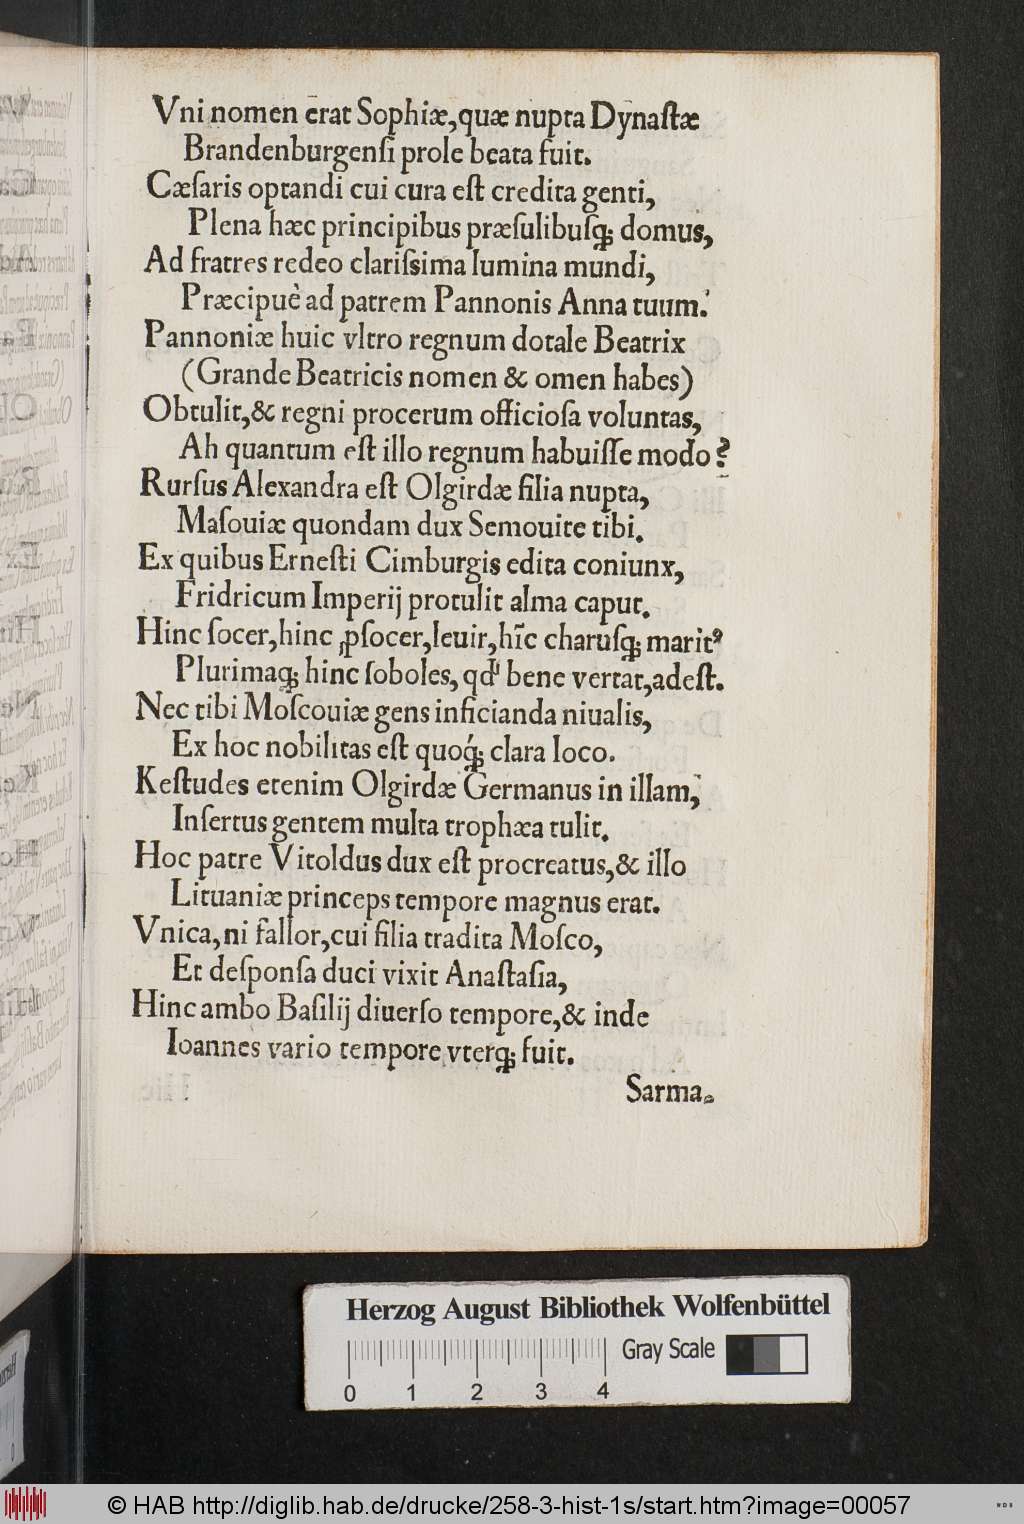 Vni nomen erat Sophiæ, quæ nupta Dynaſtæ
Brandenburgenſi prole beata fuit.
Cæſaris optandi cui cura eſt credita genti,
Plena hæc principibus præſulibuſq; domus,
Ad fratres redeo clariſsima lumina mundi,
Præcipuè ad patrem Pannonis Anna tuum.
Pannoniæ huic vltro regnum dotale Beatrix
(Grande Beatricis nomen & omen habes)
Obtulit, & regni procerum officioſa voluntas,
Ah quantum eſt illo regnum habuiſſe modo?
Rurſus Alexandra eſt Olgirdæ filia nupta,
Maſouiæ quondam dux Semouite tibi.
Ex quibus Erneſti Cimburgis edita coniunx,
Fridricum Imperij protulit alma caput.
Hinc ſocer, hinc ꝓſocer, leuir, hīc charuſq; maritꝰ
Plurimaq; hinc ſoboles, qd' bene vertat, adeſt.
Nec tibi Moſcouiæ gens inficianda niualis,
Ex hoc nobilitas eſt quoq́; clara loco.
Keſtudes etenim Olgirdæ Germanus in illam,
Inſertus gentem multa trophæa tulit.
Hoc patre Vitoldus dux eſt procreatus, & illo
Lituaniæ princeps tempore magnus erat.
Vnica, ni fallor, cui filia tradita Moſco,
Et deſponſa duci vixit Anaſtaſia,
Hinc ambo Baſilij diuerſo tempore, & inde
Ioannes vario tempore vterq; fuit.
Sarma-
Herzog August Bibliothek Wolfenbüttel
Gray Scale
0 1 2 3 4
© HAB http://diglib.hab.de/drucke/258-3-hist-1s/start.htm?image=00057